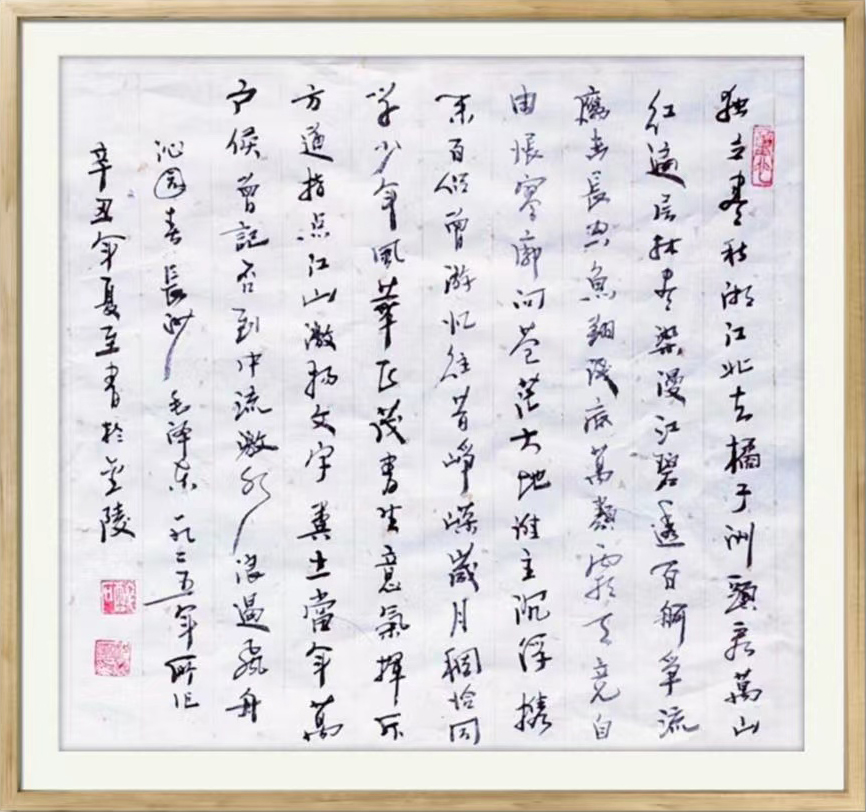 独立寒秋湘江北去橘子洲頭看萬山
红遍层林尽染漫江碧透百舸争流
鹰击長空魚翔浅底萬類霜天竞自
由怅寥廓问苍茫大地谁主沉浮携
来百侣曾游忆往昔峥嵘歲月稠恰同
学少年風華正茂書生意氣揮斥
方遒指点江山激扬文字糞土當年萬
户侯曾記否到中流激水浪遏飛舟
沁园春長沙 毛泽东一九二五年所作
辛丑年夏至書於金陵